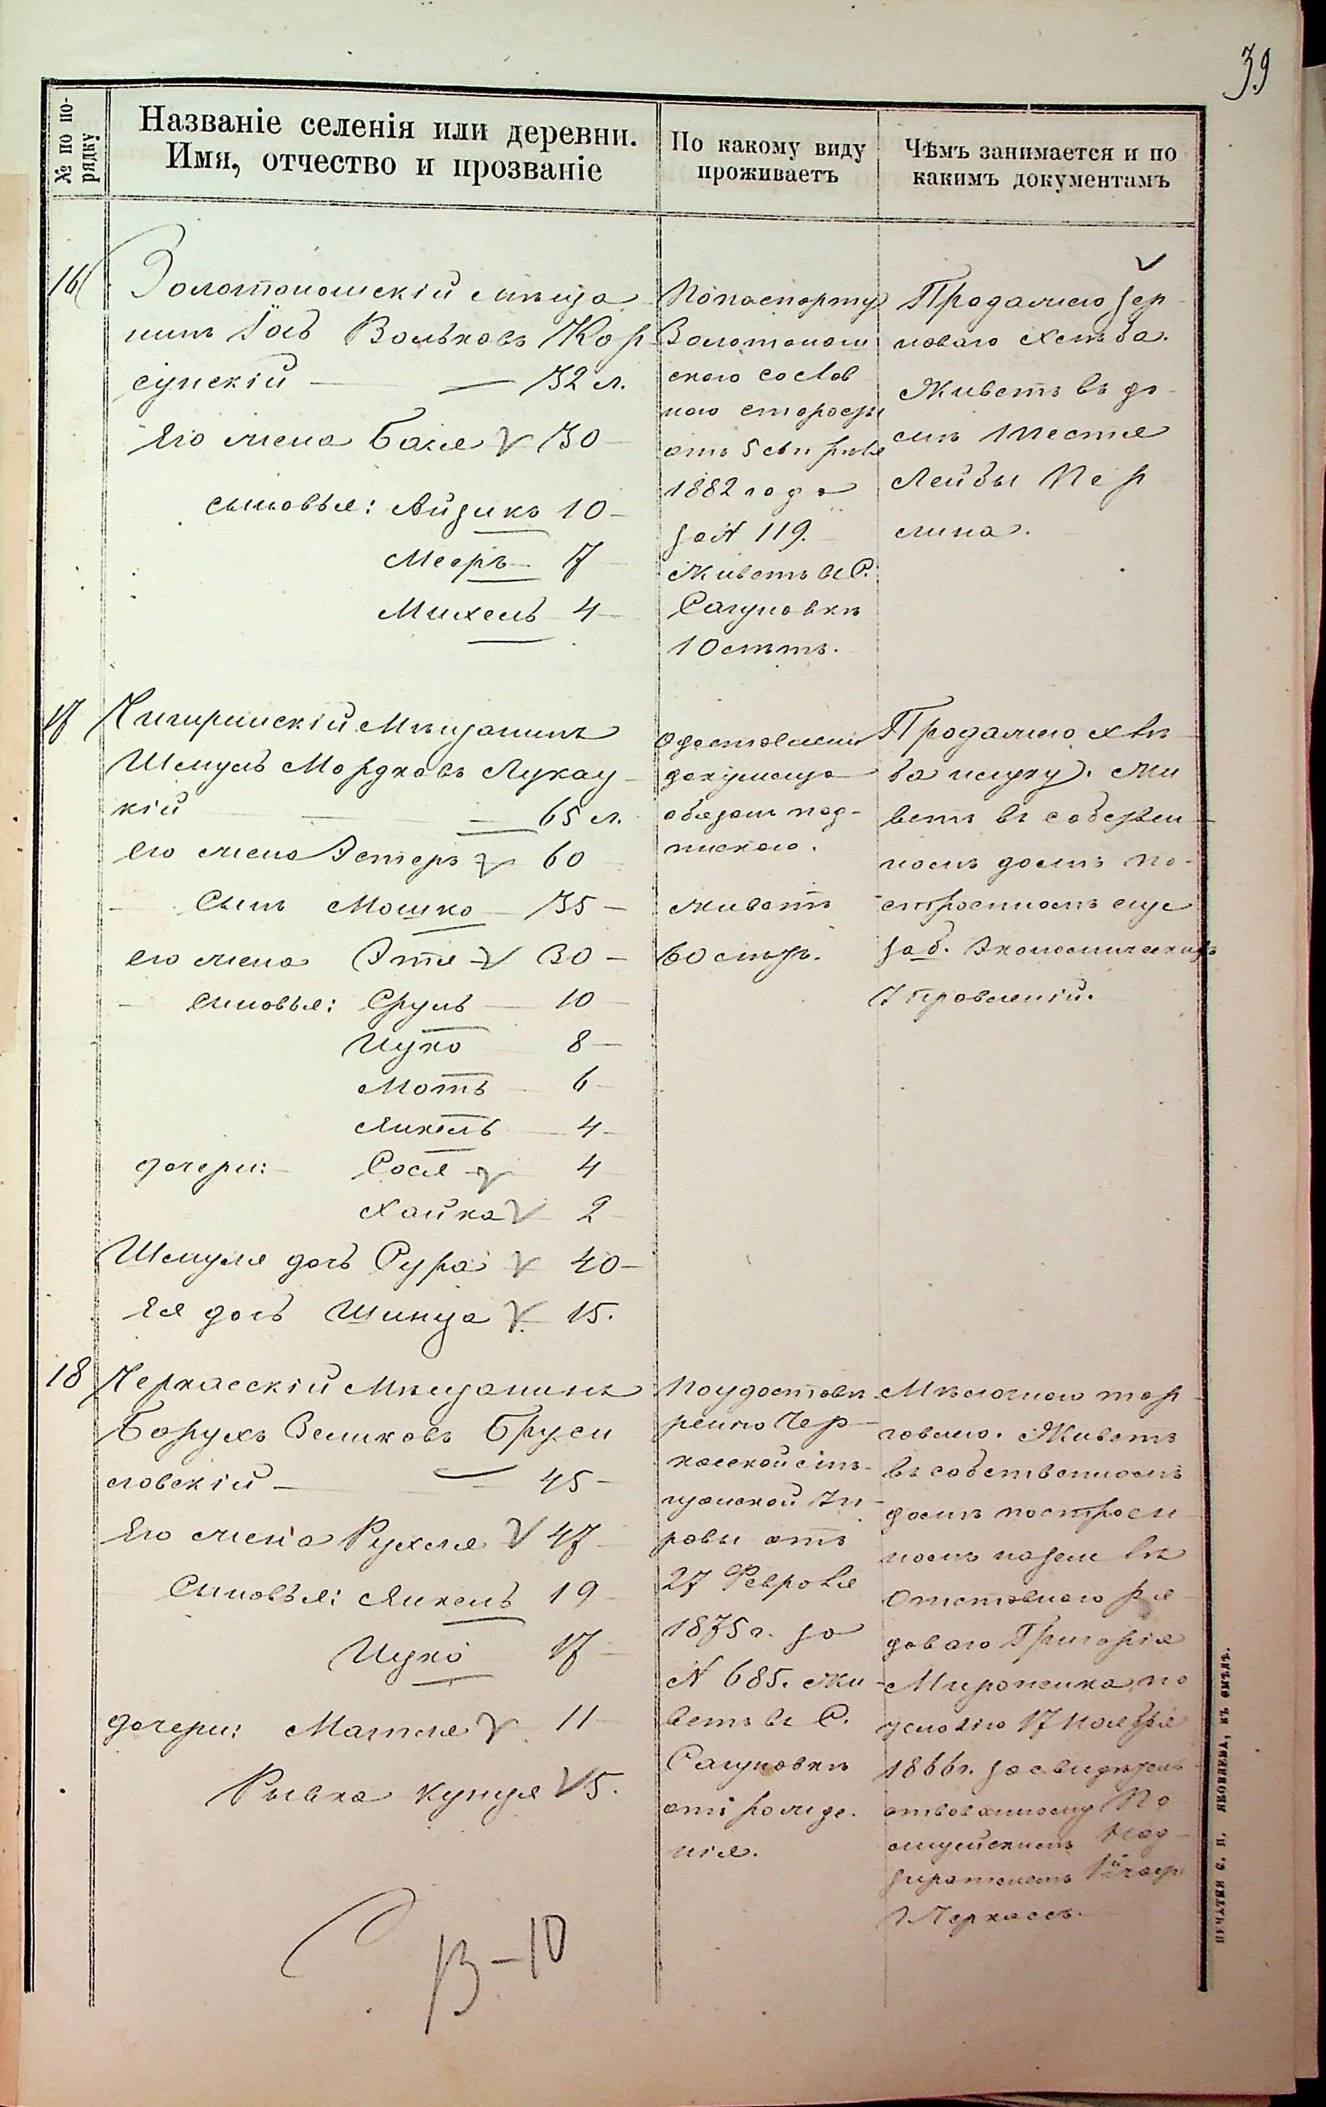 39
№ по по-
рядку
Названіе селенія или деревни.
Имя, отчество и прозваніе
По какому виду
проживаетъ
Чѣмъ занимается и по
какимъ документамъ
16
Золотоношскій мѣща
нинъ Іось Вольковъ Кор
сунскій — — 32 л.
Его жена Бася 30 —
сыновья: Айзикъ 10 —
Мееръ — 7 —
Михель 4 —
По паспорту
Золотонош
ского
1882 года
за № 119.
Живетъ въ С.
Сагуновкѣ
10 лѣтъ.
Продажею зер
новаго хлѣба.
Живетъ въ до
мѣ тестя
Лейбы Пер
лина.
17
Чигиринскій Мѣщанинъ
Шмуль Мордковъ Лукац
кій — — 65 л.
его жена Эстеръ 60
Сынъ Мошко — 35 —
его жена Этя 30 —
сыновья: Сруль — 10 —
Ицко 8 —
Моть — 6 —
Янкель — 4 —
дочери: — Сося 4
Хайка 2 —
Шмуля дочь Сура 40 —
Ея дочь Шинца 15.
документа
обязанъ под-
пискою.
живетъ
60
Продажею хлѣ
ба и муки. Жи
ветъ въ собствен
номъ домѣ по-
строенномъ еще
за б. Экономическихъ
Управленій.
18
Черкасскій Мѣщанинъ
Борухъ Зеликовъ Бруси
ловскій — — 45 —
Его жена Рухля 47 —
Сыновья: Янкель 19 —
Ицко 17 —
дочери: Матля 11 —
Рывка Кунця 5.
По удостовѣ
ренію Чер-
касской мѣ-
щанской Уп-
равы отъ
27 Февраля
1875 г. за
№ 685. Жи-
ветъ въ С.
Сагуновкѣ
отъ рожде-
нія.
Мѣлочною тор
говлею. Живетъ
въ собственномъ
домѣ построен
номъ на землѣ
Отставнаго ря
доваго Григорія
Мироненка, по
условію 17 Ноября
1866 г. засвидѣтель
ствованному По
лицейскимъ Над-
зирателемъ части
г. Черкассъ.
13 – 10
ПЕЧАТНЯ С. П. ЯКОВЛЕВА, ВЪ СМѢЛѢ.